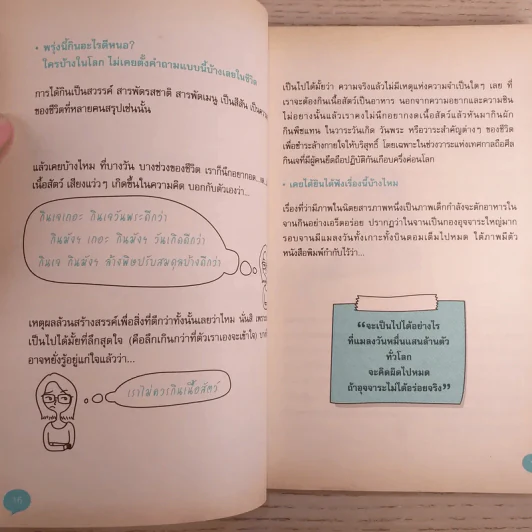 • พรุ่งนี้กินอะไรดีหนอ?
ใครบ้างในโลก ไม่เคยตั้งคำถามแบบนี้บ้างเลยในชีวิต
การได้กินเป็นสวรรค์ สารพัดรสชาติ สารพัดเมนู เป็นสีสัน เป็น
ของชีวิตที่หลายคนสรุปเช่นนั้น
แล้วเคยบ้างไหม ที่บางวัน บางช่วงของชีวิต เราก็นึกอยากอด
เนื้อสัตว์ เสียงแว่วๆ เกิดขึ้นในความคิด บอกกับตัวเองว่า...
กินเจเถอะ กินเจวันพระดีกว่า
กินมังฯ เถอะ กินมังฯ วันเกิดดีกว่า
กินเจ กินมังฯ ล้างพิษปรับสมดุลบ้างดีกว่า
เหตุผลล้วนสร้างสรรค์เพื่อสิ่งที่ดีกว่าทั้งนั้นเลยว่าไหม นั่นสิ เพราะ
เป็นไปได้มั้ยที่ลึกสุดใจ (คือลึกเกินกว่าที่ตัวเราเองจะเข้าใจ)
อาจหยั่งรู้อยู่แก่ใจแล้วว่า...
เราไม่ควรกินเนื้อสัตว์
เป็นไปได้มั้ยว่า ความจริงแล้วไม่มีเหตุแห่งความจำเป็นใดๆ เลย ที่
เราจะต้องกินเนื้อสัตว์เป็นอาหาร นอกจากความอยากและความชิน
ไม่อย่างนั้นแล้วเราคงไม่นึกอยากงดเนื้อสัตว์แล้วหันมากินผัก
กินพืชแทน ในวาระวันเกิด วันพระ หรือวาระสำคัญต่างๆ ของชีวิต
เพื่อชำระล้างกายใจให้บริสุทธิ์ โดยเฉพาะในช่วงวาระแห่งเทศกาลถือศีล
กินเจที่มีผู้คนยึดถือปฏิบัติกันเกือบครึ่งค่อนโลก
• เคยได้ยินได้ฟังเรื่องนี้บ้างไหม
เรื่องที่ว่ามีภาพในนิตยสารภาพหนึ่งเป็นภาพเด็กกำลังจะตักอาหารใน
จานกินอย่างเอร็ดอร่อย ปรากฏว่าในจานเป็นกองอุจจาระใหญ่มาก
รอบจานมีแมลงวันทั้งเกาะทั้งบินตอมเต็มไปหมด ใต้ภาพมีตัว
หนังสือพิมพ์กำกับไว้ว่า...
“จะเป็นไปได้อย่างไร
ที่แมลงวันหมื่นแสนล้านตัว
ทั่วโลก
จะคิดผิดไปหมด
ถ้าอุจจาระไม่ได้อร่อยจริง”